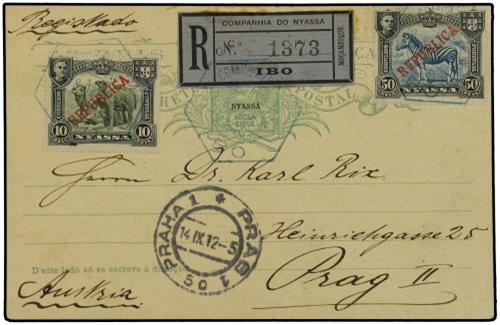 Registado
COMPANHIA DO NYASSA
R No. 1373
MOÇAMBIQUE
IBO
REPUBLICA
10 NYASSA 10
REPUBLICA
50 NYASSA 50
NYASSA
POSTAL
Herrn Dr. Karl Rix
Heinrichgasse 25
Prag II
PRAHA 1 * PRAG 1
14 IX 12-5
50
D'este lado só se escreve a direcção
Austria